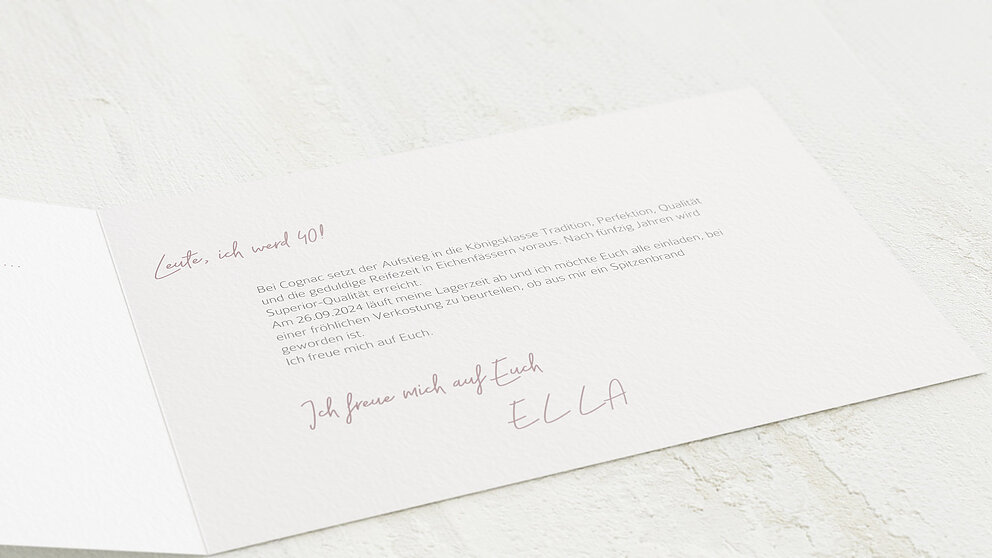 ...
Leute, ich werd 40!
Bei Cognac setzt der Aufstieg in die Königsklasse Tradition, Perfektion, Qualität
und die geduldige Reifezeit in Eichenfässern voraus. Nach fünfzig Jahren wird
Superior-Qualität erreicht.
Am 26.09.2024 läuft meine Lagerzeit ab und ich möchte Euch alle einladen, bei
einer fröhlichen Verkostung zu beurteilen, ob aus mir ein Spitzenbrand
geworden ist.
Ich freue mich auf Euch.
Ich freue mich auf Euch
ELLA